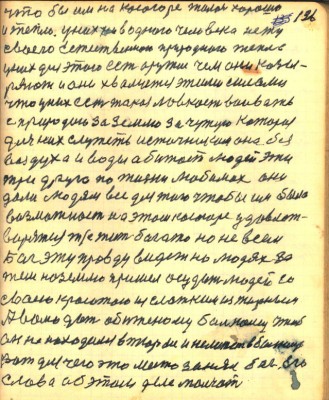 что бы им на косогоре было хорошо 126
и тепло. у них ни в одного человека нету
своего естественного природного тепла
у них для этого есть оружие чем они ковы-
ряют и они хвалятся этими силами
что у них есть такая ловкость воевать
с природою за землю за чужую которая
для них служить источником она без
воздуха и воды а бижает людей эти
три друга по жизни любимых они
дали людям все для того чтобы им была
возможность на этом косогоре удовлет-
варятся живет богато но не всем
Бог эту правду видет на людях за
тем на землю пришел осудит людей со
своею красотою и сладким их
А воль даст обиженому больному чтоб
он не находился в тюрьме и не
вот для чего это место занял бог. его
слова об этом деле молчат